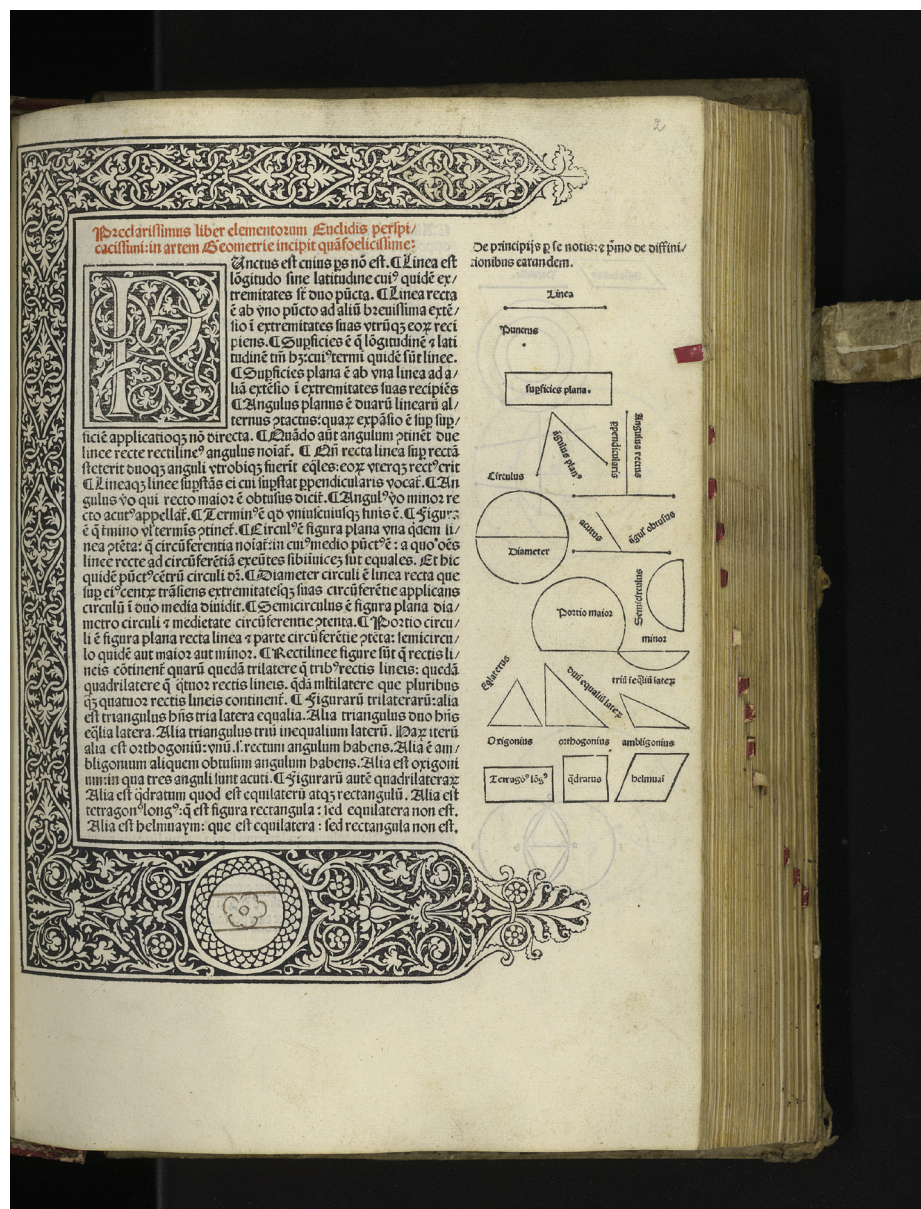 2
Preclarissimus liber elementorum Euclidis perspi/
cacissimi: in artem Geometrie incipit quãfoelicissime:
Punctus est cuius ps nõ est. ¶Linea est
lõgitudo sine latitudine cuiꝰ quidẽ ex/
tremitates sũt duo pũcta. ¶Linea recta
ẽ ab vno pũcto ad aliũ breuissima extẽ/
sio ĩ extremitates suas vtrũqꝫ eoꝝ reci
piens. ¶Supficies ẽ q̃ lõgitudinẽ ⁊ lati
tudinẽ tm̃ hꝫ: cuiꝰ termi quidẽ sũt linee.
¶Supficies plana ẽ ab vna linea ad a/
liã extẽsio ĩ extremitates suas recipiẽs
¶Angulus planus ẽ duarũ linearũ al/
ternus ꝯtactus: quaꝝ expãsio ẽ sup sup/
ficiẽ applicatioqꝫ nõ directa. ¶Quãdo aũt angulum ꝯtinẽt due
linee recte rectilineꝰ angulus noiat̃. ¶Qñ recta linea sup rectã
steterit duoqꝫ anguli vtrobiqꝫ fuerĩt eq̃les: eoꝝ vterqꝫ rectꝰ erit
¶Lineaqꝫ linee supstãs ei cui supstat ppendicularis vocat̃. ¶An
gulus vo qui recto maior ẽ obtusus dicit̃. ¶Angulꝰ vo minor re
cto acutꝰ appellat̃. ¶Terminꝰ ẽ qð vniuscuiusqꝫ finis ẽ. ¶Figura
ẽ q̃ tmino vl̃ termis ꝯtinet̃. ¶Circulꝰ ẽ figura plana vna qdem li/
nea ꝯtẽta: q̃ circũferentia noiat̃: in cuiꝰ medio pũctꝰ ẽ: a quo oẽs
linee recte ad circũferẽtiã exeũtes sibiĩuicẽ sut equales. Et hic
quidẽ pũctꝰ cẽtrũ circuli dr̃. ¶Diameter circuli ẽ linea recta que
sup eiꝰ centꝝ trãsiens extremitatesqꝫ suas circũferẽtie applicans
circulũ ĩ duo media diuidit. ¶Semicirculus ẽ figura plana dia/
metro circuli ⁊ medietate circũferentie ꝯtenta. ¶Portio circu/
li ẽ figura plana recta linea ⁊ parte circũferẽtie ꝯtẽta: semicircu/
lo quidẽ aut maior aut minor. ¶Rectilinee figure sũt q̃ rectis li/
neis cõtinent̃ quarũ quedã trilatere q̃ tribꝰ rectis lineis: quedã
quadrilatere q̃ q̃tuor rectis lineis. qdã ml̃tilatere que pluribus
qꝫ quatuor rectis lineis continent̃. ¶Figurarũ trilaterarũ: alia
est triangulus hñs tria latera equalia. Alia triangulus duo hñs
eq̃lia latera. Alia triangulus triũ inequalium laterũ. Haꝝ iterũ
alia est orthogoniũ: vnũ .s. rectum angulum habens. Alia ẽ am/
bligonium aliquem obtusum angulum habens. Alia est oxigoni
um: in qua tres anguli sunt acuti. ¶Figurarũ autẽ quadrilateraꝝ
Alia est q̃dratum quod est equilaterũ atqꝫ rectangulũ. Alia est
tetragonꝰ longꝰ: q̃ est figura rectangula: sed equilatera non est.
Alia est helmuaym: que est equilatera: sed rectangula non est.
De principijs p se notis: ⁊ pmo de diffini/
tionibus earundem.
Linea
Punctus
supficies plana.
ãgulus planꝰ
ppendicularis
Angulus rectus
Circulus
acutus
ãgulꝰ obtusus
Diameter
Semicirculus
Portio maior
minor
Eq̃laterus
duũ equaliũ lateꝝ
triũ ĩeq̃liũ lateꝝ
Oxigonius
orthogonius
ambligonius
Tetragoꝰ lõgꝰ
q̃dratus
helmuaĩ